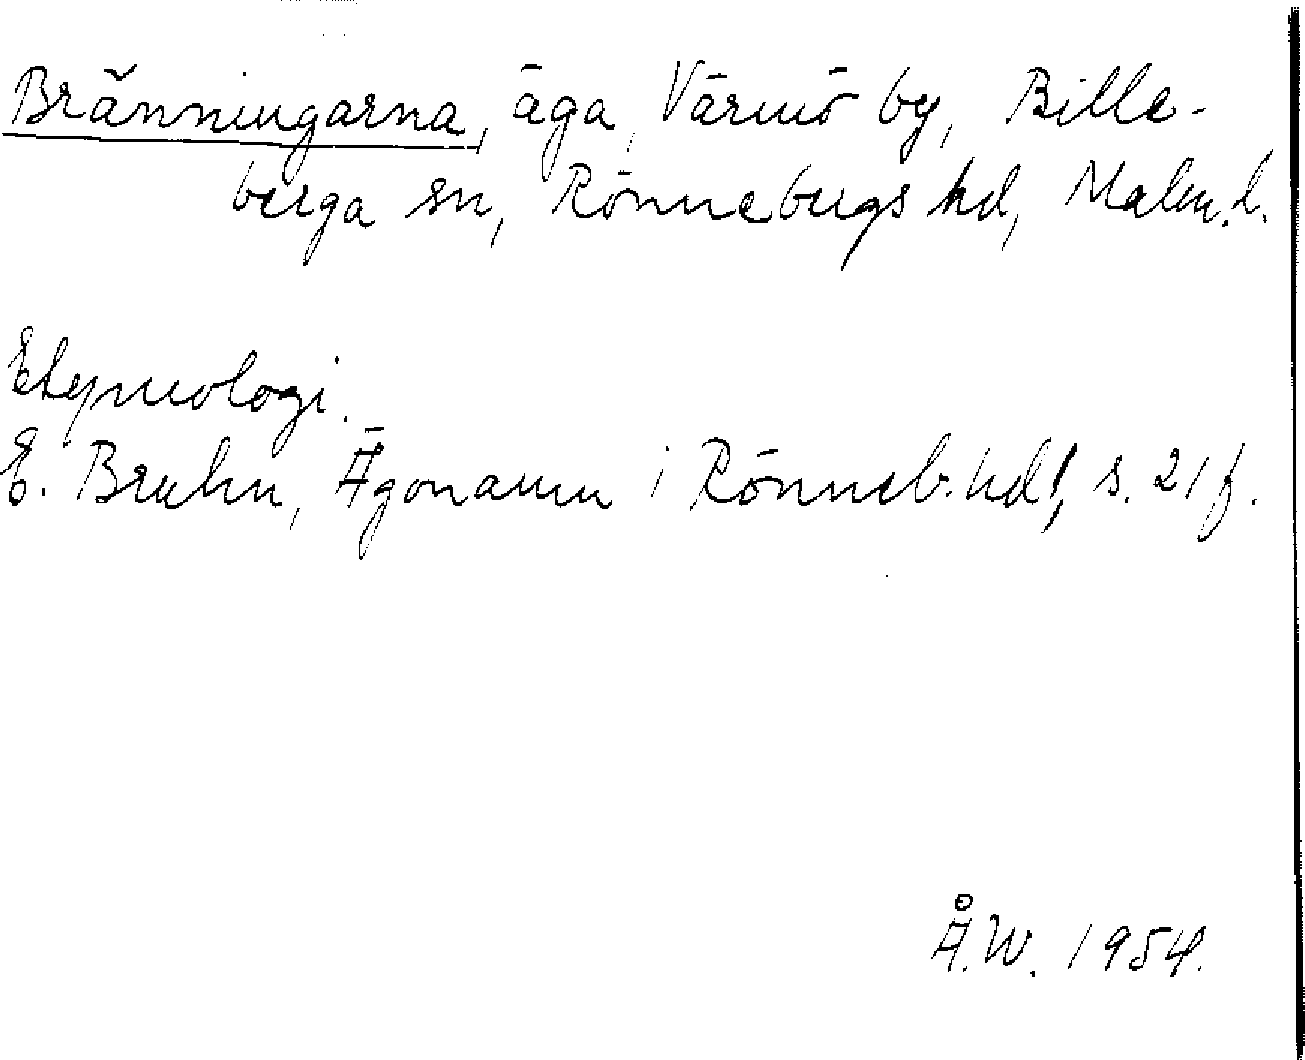 Bränningarna, äga, Värmö by, Bille-
berga sn, Rönnebergs hd, Malm. l.
Etymologi.
E. Bruhn, Ägonamn i Rönneb. hd, s. 21 f.
Å.W. 1954.